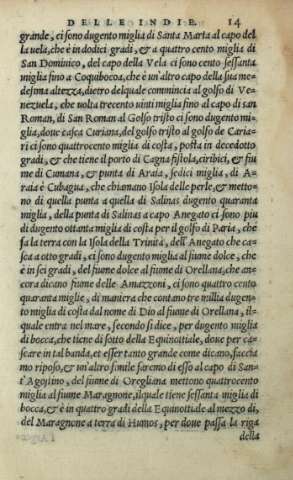 DELLE INDIE. 14
grande, ci sono dugento miglia di Santa Marta al capo del
la uela, che è in dodici gradi, & a quattro cento miglia di
San Dominico, del capo della Vela ci sono cento sessanta
miglia fino a Coquibocoa, che è un'altro capo della sua me=
desima altezza, dietro delquale commincia al golfo di Ve=
nezuela, che uolta trecento uinti miglia fino al capo di san
Roman, di San Roman al Golfo tristo ci sono dugento mi=
glia, doue casca Curiana, del golfo tristo al golfo de Caria=
ri ci sono quattrocento miglia di costa, posta in decedotto
gradi, & che tiene il porto di Cagna fistola, ciribici, & fiu
me di Cumana, & punta di Araia, sedici miglia, di A=
raia è Cubagua, che chiamano Isola delle perle, & metto=
no di quella punta a quella di Salinas dugento quaranta
miglia, della punta di Salinas a capo Anegato ci sono piu
di dugento ottanta miglia di costa per il golfo di Paria, che
fa la terra con la Isola della Trinità, dell'Anegato che ca=
sca a otto gradi, ci sono dugento miglia al fiume dolce, che
è in sei gradi, del fiume dolce al fiume di Orellana, che an=
cora dicano fiume delle Amazzoni, ci sono quattro cento
quaranta miglie, di maniera che contano tre millia dugen=
to miglia di costa dal nome di Dio al fiume di Orellana, il=
quale entra nel mare, secondo si dice, per dugento miglia
di bocca, che tiene di sotto della Equinottiale, doue per ca=
scare in tal banda, et esser tanto grande come dicano, faccia
mo riposo, & un'altro simile faremo di esso al capo di San=
t'Agostino, del fiume di Oregliana mettono quattrocento
miglia al fiume Maragnone, ilquale tiene sessanta miglia di
bocca, & è in quattro gradi della Equinottiale al mezzo di,
del Maragnone a terra di Humos, per doue passa la riga
della